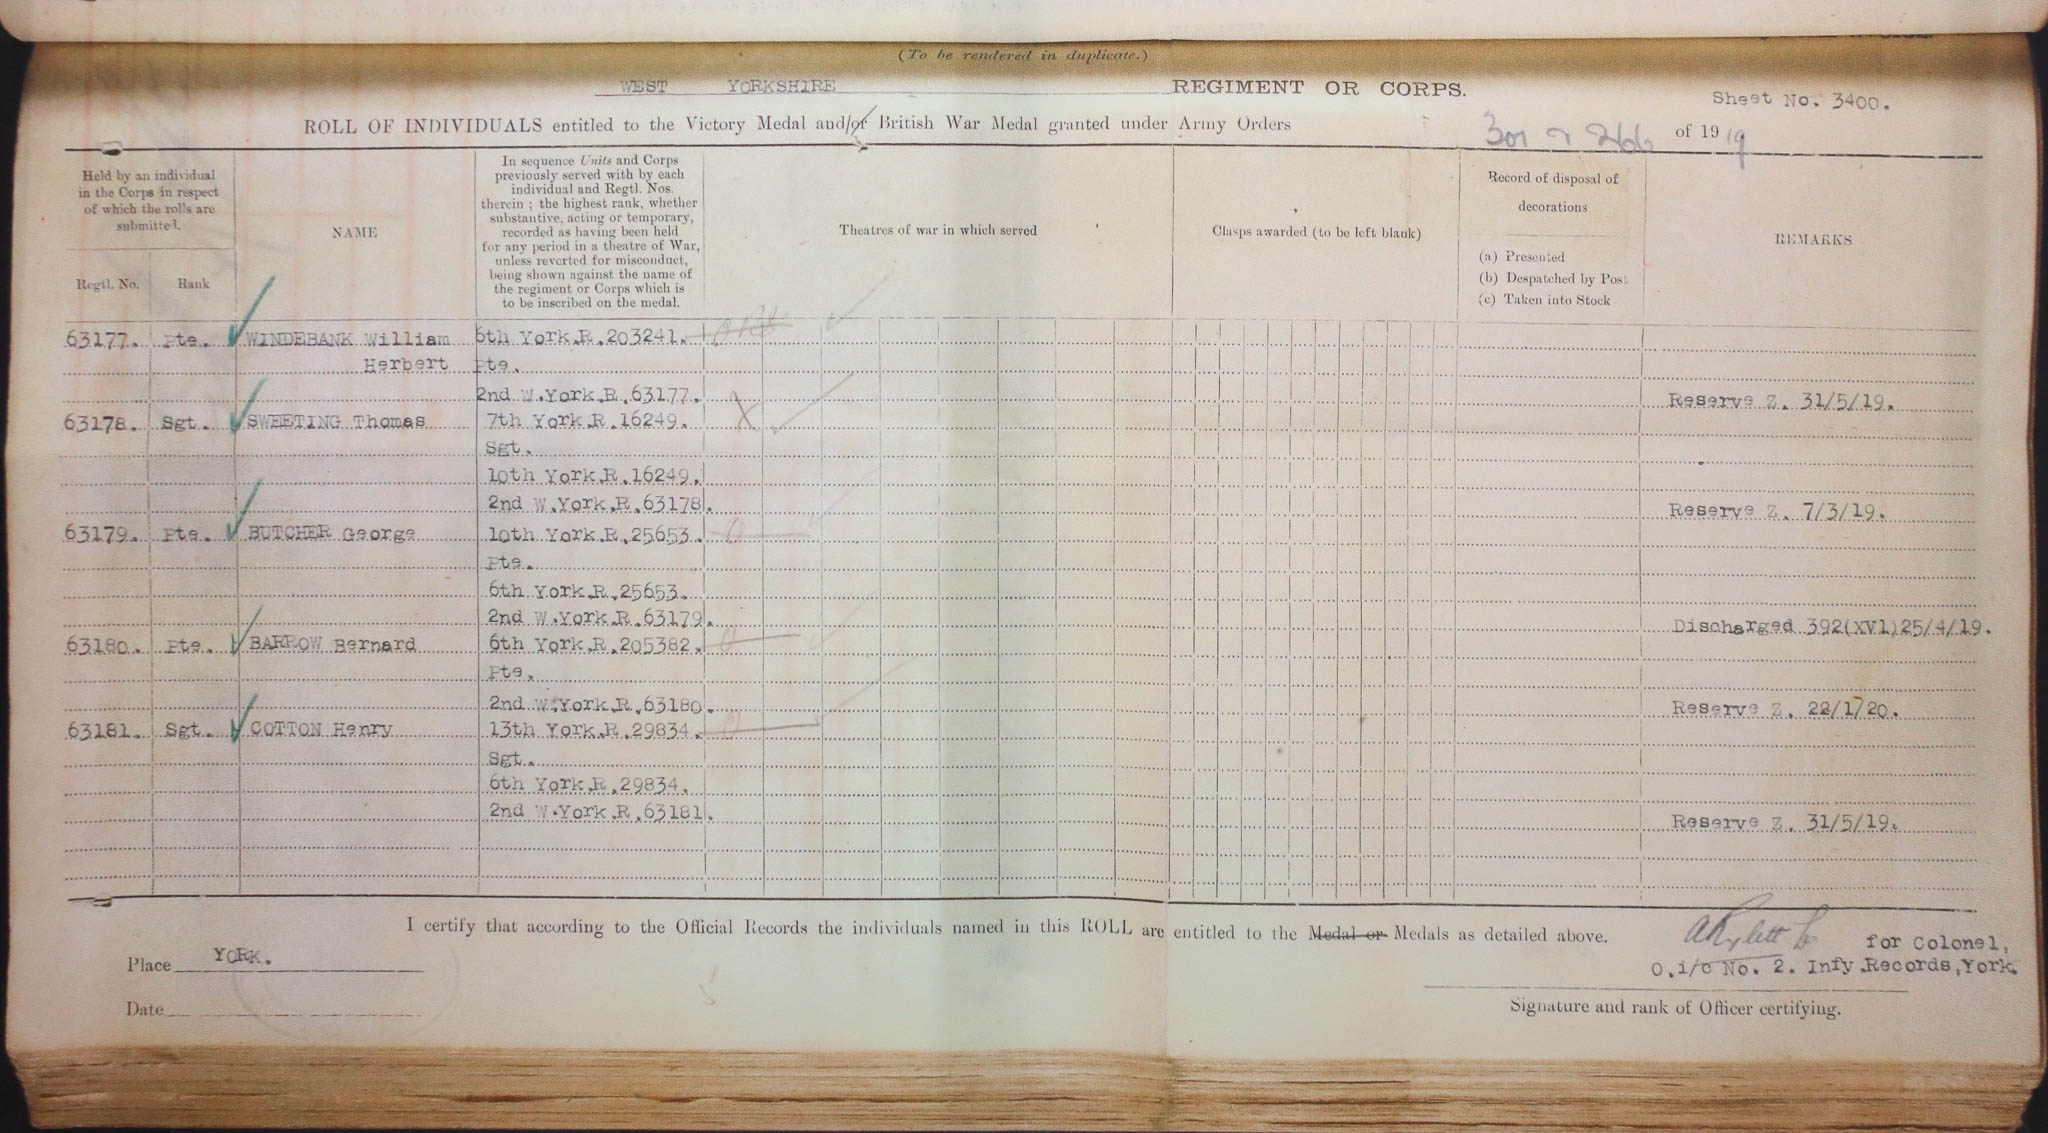 (To be rendered in duplicate.)
WEST YORKSHIRE REGIMENT OR CORPS.
Sheet No. 3400.
ROLL OF INDIVIDUALS entitled to the Victory Medal and/or British War Medal granted under Army Orders 301 & 266 of 1919
Held by an individual
in the Corps in respect
of which the rolls are
submitted.
Regtl. No. Rank
NAME
In sequence Units and Corps
previously served with by each
individual and Regtl. Nos.
therein ; the highest rank, whether
substantive, acting or temporary,
recorded as having been held
for any period in a theatre of War,
unless reverted for misconduct,
being shown against the name of
the regiment or Corps which is
to be inscribed on the medal.
Theatres of war in which served
Clasps awarded (to be left blank)
Record of disposal of
decorations
(a) Presented
(b) Despatched by Post
(c) Taken into Stock
REMARKS
63177. Pte. WINDEBANK William 6th York.R.203241.
Herbert Pte.
2nd W.York.R.63177. Reserve Z. 31/5/19.
63178. Sgt. SWEETING Thomas 7th York.R.16249. X
Sgt.
10th York.R.16249.
2nd W.York.R.63178. Reserve Z. 7/3/19.
63179. Pte. BUTCHER George 10th York.R.25653. O
Pte.
6th York.R.25653.
2nd W.York.R.63179. Discharged 392(XVI)25/4/19.
63180. Pte. BARROW Bernard 6th York.R.205382. O
Pte.
2nd W.York.R.63180. Reserve Z. 22/1/20.
63181. Sgt. COTTON Henry 13th York.R.29834. O
Sgt.
6th York.R.29834.
2nd W.York.R.63181. Reserve Z. 31/5/19.
I certify that according to the Official Records the individuals named in this ROLL are entitled to the Medal or Medals as detailed above.
for Colonel,
Place YORK.
O.i/c No. 2. Infy.Records,York.
Date
Signature and rank of Officer certifying.